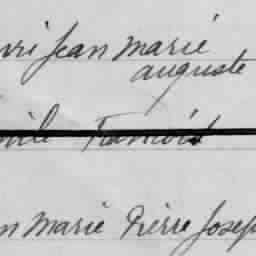 nri Jean Marie
auguste
mile Francois
n Marie Pierre Josep